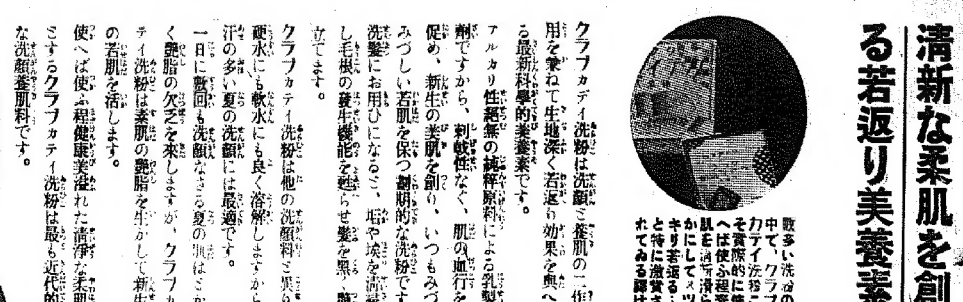 清新な柔肌を創
る若返り美養素
数多い洗粉の
中で、クラブ
カテイ洗粉こ
そ実際的に使
へば使ふ程素
肌を清新滑ら
かにしてメッ
キリ若返る…
と特に激賞さ
れてゐる譯は
クラブカテイ洗粉は洗顔と養肌の二作
用を兼ねて生地深く若返り効果を與へ
る最新科學的美養素です。
アルカリ性絕無の純粹原料による乳型
劑ですから、刺戟性なく、肌の血行を
促め、新生の美肌を創り、いつもみづ
みづしい若肌を保つ劃期的な洗粉です
洗髪にお用ひになると、垢や埃を清掃
し毛根の發生機能を甦らせ髪を黑く艶
立てます。
クラブカテイ洗粉は他の洗顔料と異り
硬水にも軟水にも良く溶解しますから
汗の多い夏の洗顔には最適です。
一日に數回も洗顔なさる夏の肌はとか
く艶脂の欠乏を來しますが、クラブカ
テイ洗粉は素肌の艶脂を生かして新生
の若肌を活します。
とするクラブカテイ洗粉は最も近代的
使へば使ふ程健康美溢れた清淨な柔肌
な洗顔養肌料です。